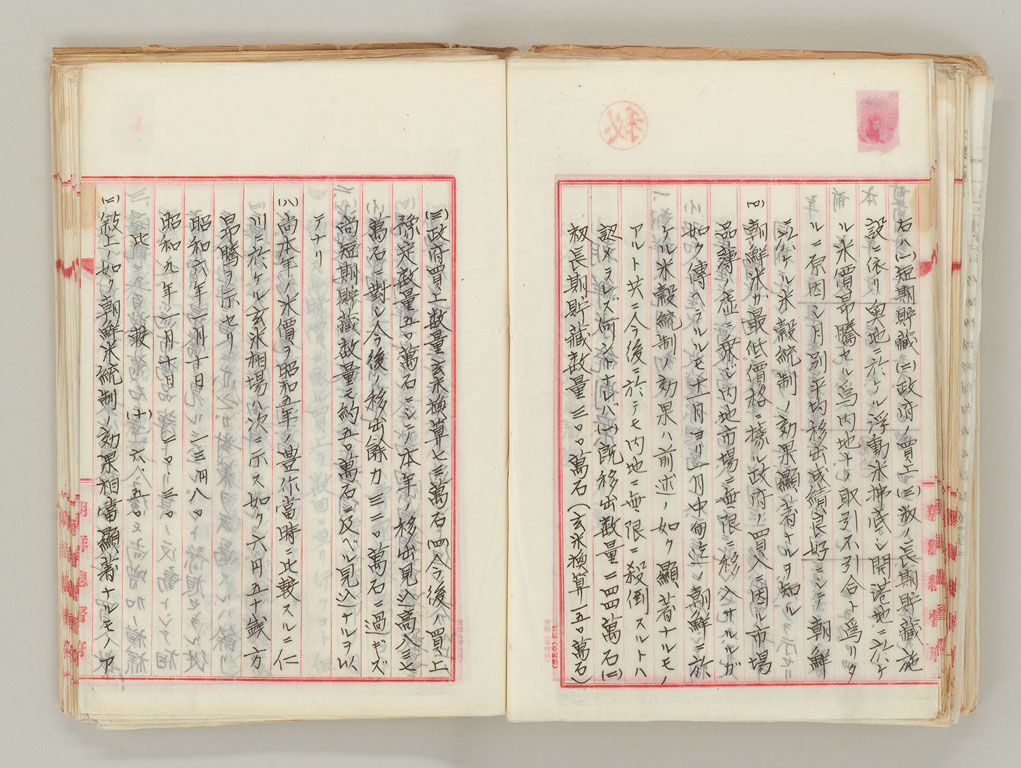 右ハ(一)短期貯藏(二)政府ノ買上(三)籾ノ長期貯藏施
設ニ依リ鮮地ニ於ケル浮動米拂底シ開港地ニ於ケ
ル米價昂騰セル爲内地トノ取引不引合ト爲リタ
ルニ原因シ月別平均移出成績良好ニシテ朝鮮
ニ於ケル米穀統制ノ効果顯著ナルヲ知ル
(四)朝鮮米ガ最低價格ニ據ル政府ノ買入ニ因ル市場
品薄ノ虚ニ乘ジ内地市場ニ無限ニ移入サルルガ
如ク傳ヘラルルモ十一月ヨリ一月中旬迄ノ朝鮮ニ於
ケル米穀統制ノ効果ハ前述ノ如ク顯著ナルモノ
アルト共ニ今後ニ於テモ内地ニ無限ニ殺倒スルトハ
認メラレズ何今トナレバ(イ)既移出数量二四四萬石(二)
籾長期貯藏数量三〇〇萬石(玄米換算一五〇萬石)
(三)政府買上数量玄米換算七三萬石四今後ノ買上
豫定数量五〇萬石ニシテ本年ノ移出見込高八七〇
萬石ニ對シ今後ノ移出餘力ハ三三〇萬石ニ過ギズ
尚短期貯藏数量モ約五〇萬石ニ及ベル見込ナルヲ以
テナリ
(八)尚本年ノ米價ヲ昭和五年ノ豊作當時ニ比較スルニ仁
川ニ於ケル玄米相場ハ次ニ示ス如ク六円五十錢方
昂騰ヲ示セリ
昭和六年一月十日 一三円八〇
昭和九年一月十日 二〇・三〇
此ノ差 (十)六・五〇
(二)敍上ノ如ク朝鮮米統制ノ効果相當顯著ナルモノア